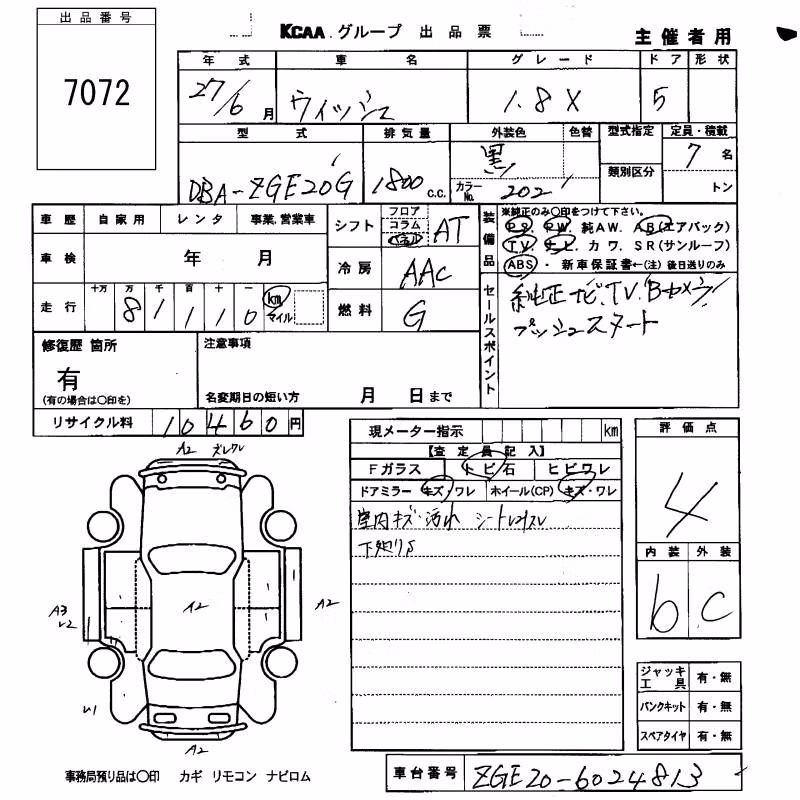 出品番号
7072
KCAA.グループ 出品票
主催者用
年式 車名 グレード ドア 形状
27/6月 ウィッシュ 1.8X 5
型式 排気量 外装色 色替 型式指定 定員・積載
DBA-ZGE20G 1800 c.c. 黒 類別区分 7名
カラーNo. 202 トン
車歴 自家用 レンタ 事業.営業車
シフト フロア コラム パネル AT
装備品
※純正のみ○印をつけて下さい。
PS. PW. 純AW. AB(エアバック)
TV. ナビ. カワ. SR(サンルーフ)
ABS ・ 新車保証書←(注) 後日送りのみ
車検 年 月
冷房 AAC
走行 十万 万 千 百 十 一
8 1 1 1 0 km マイル
燃料 G
セールスポイント
純正ナビ.TV.Bカメラ
プッシュスタート
修復歴 箇所
有
(有の場合は○印を)
注意事項
名変期日の短い方 月 日まで
リサイクル料 10460円
現メーター指示 km
評価点
4
【査定員記入】
Fガラス トビ石 ヒビワレ
ドアミラー キズ・ワレ ホイール(CP) キズ・ワレ
室内キズ・汚れ
内装 外装
b C
A2
A2
A3
A2
A2
ジャッキ工具 有・無
パンクキット 有・無
スペアタイヤ 有・無
事務局預り品は○印 カギ リモコン ナビロム
車台番号 ZGE20-6024813